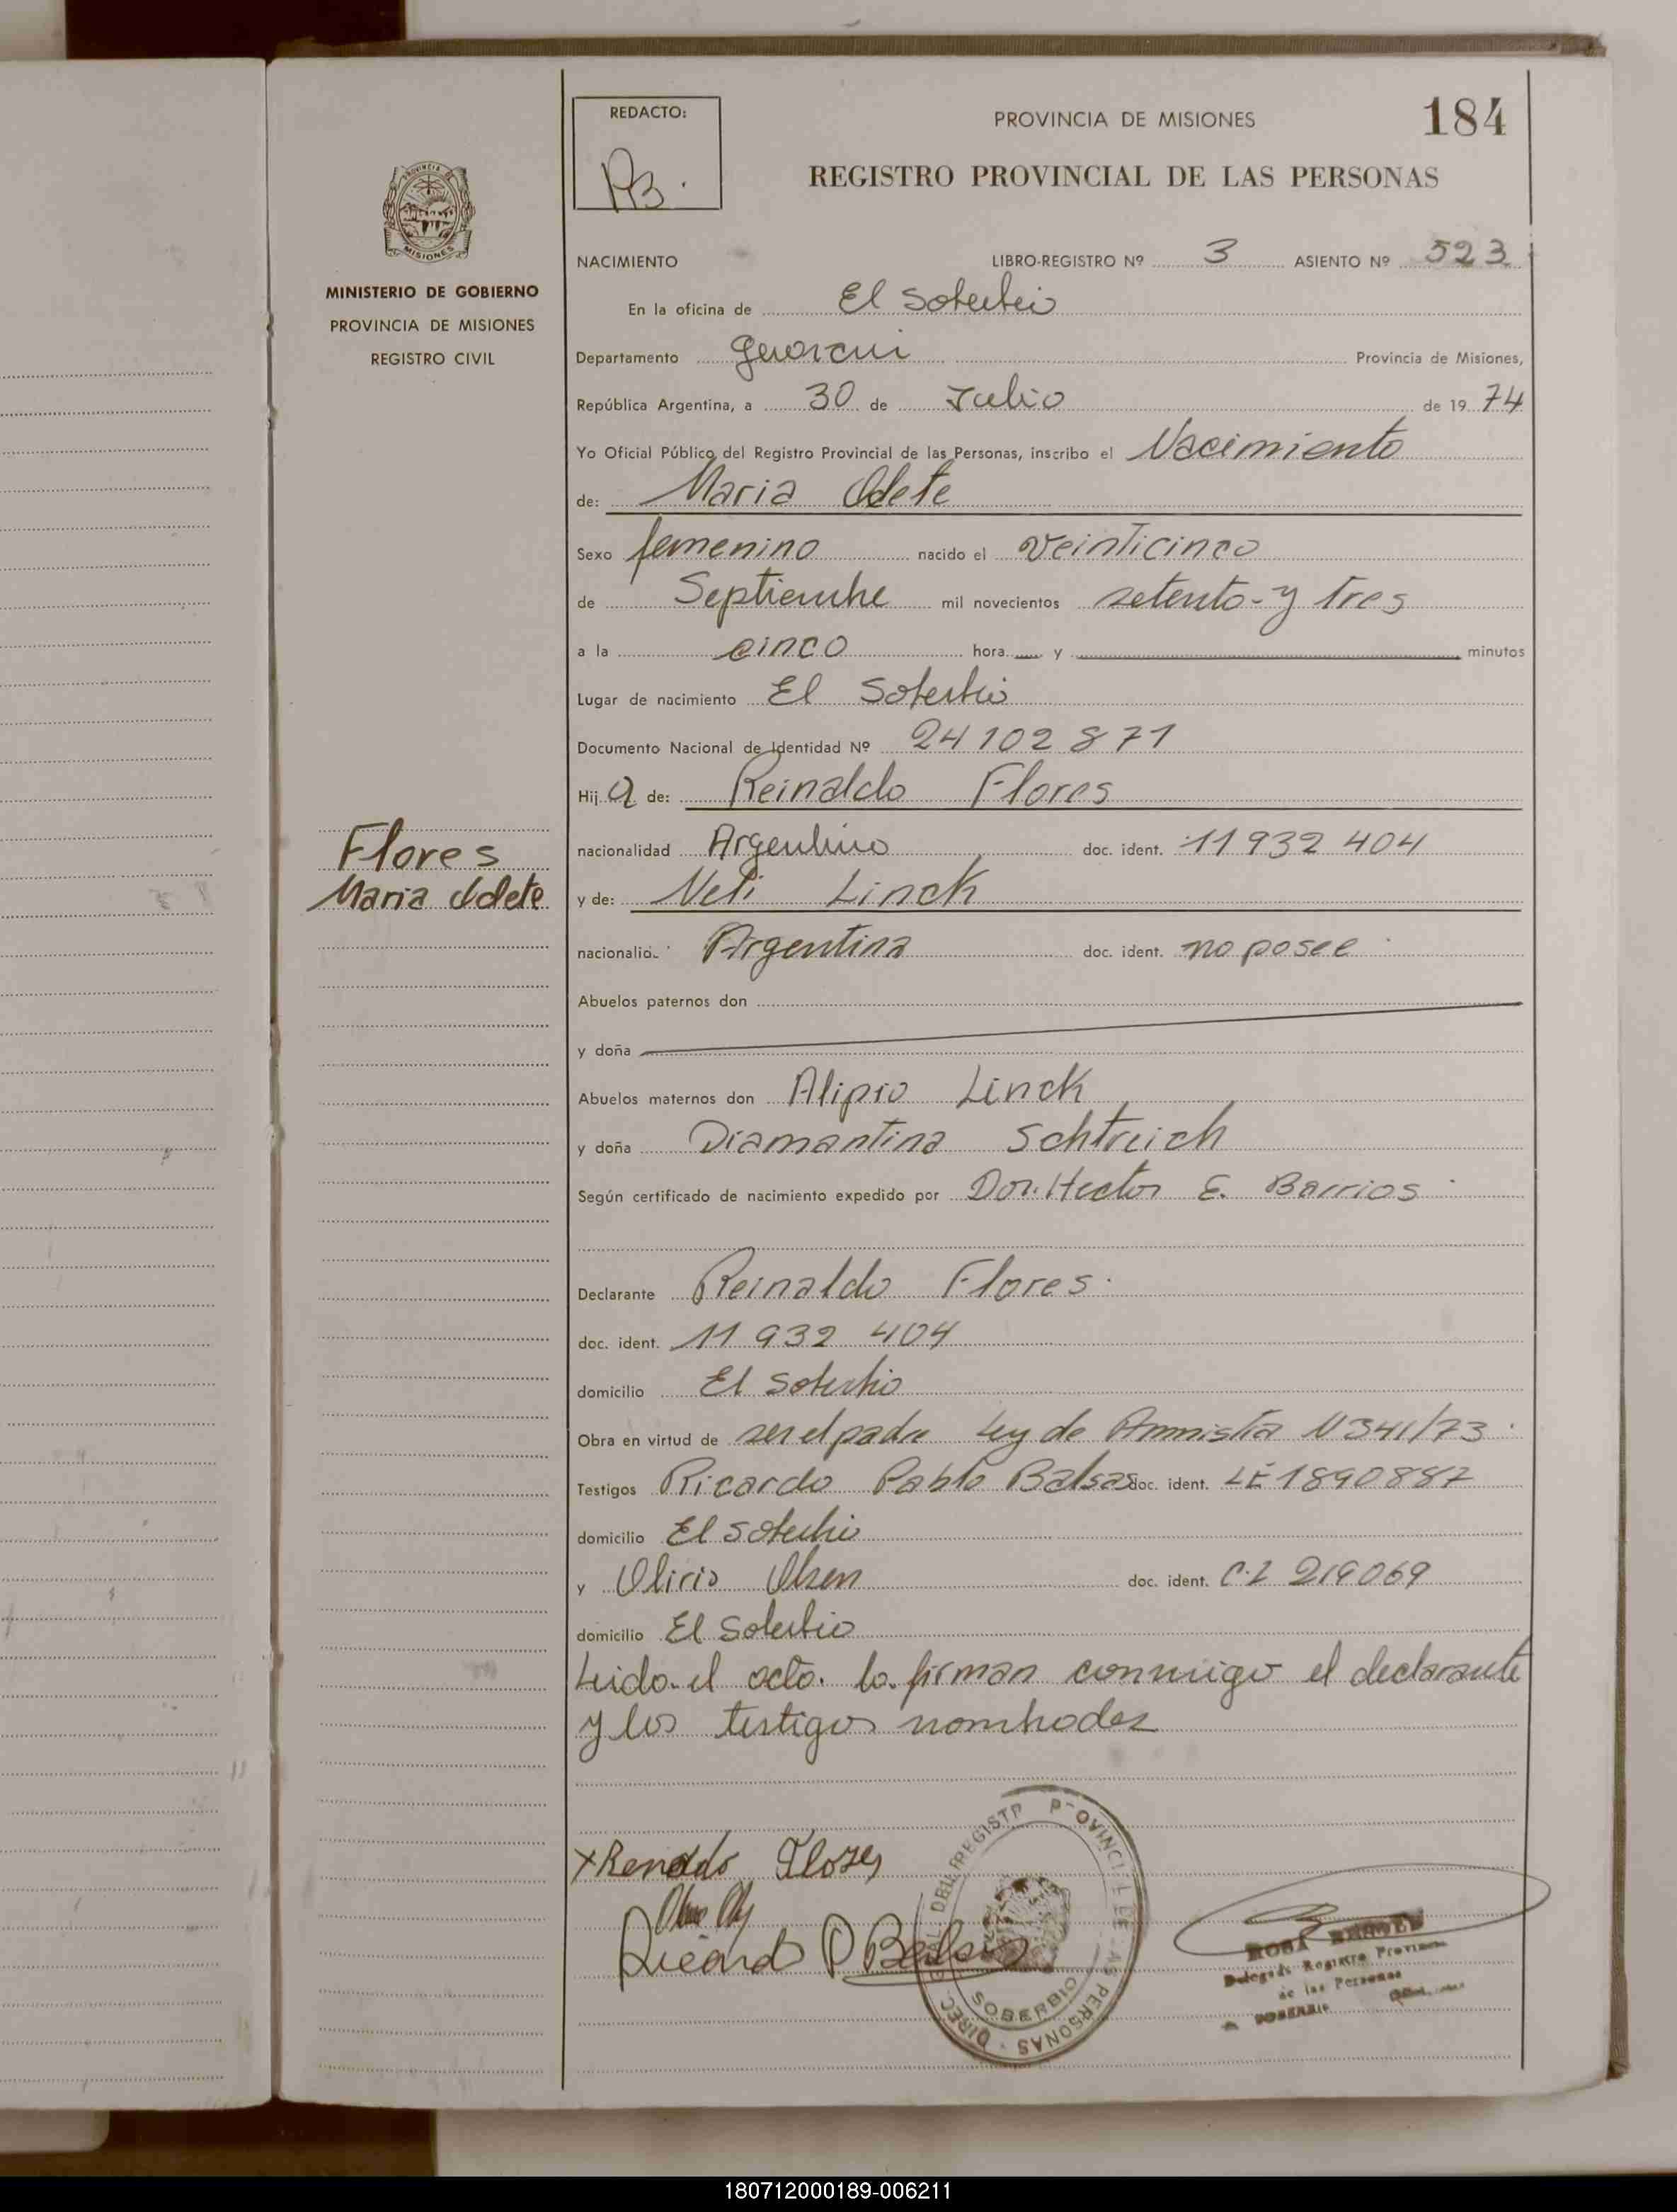 184
REDACTO:
PROVINCIA DE MISIONES
REGISTRO PROVINCIAL DE LAS PERSONAS
PROVINCIA DE
MISIONES
MINISTERIO DE GOBIERNO
PROVINCIA DE MISIONES
REGISTRO CIVIL
NACIMIENTO LIBRO-REGISTRO Nº 3 ASIENTO Nº 523
En la oficina de El Soberbio
Departamento Guarani Provincia de Misiones,
República Argentina, a 30 de Julio de 19 74
Yo Oficial Público del Registro Provincial de las Personas, inscribo el Nacimiento
de: Maria Odete
Sexo femenino nacido el veinticinco
de Septiembre mil novecientos setenta y tres
a la cinco hora y minutos
Lugar de nacimiento El Soberbio
Documento Nacional de Identidad Nº 24 102 871
Hij a de: Reinaldo Flores
nacionalidad Argentino doc. ident. 11 932 404
Flores
Maria Odete
y de: Neli Linck
nacionalid Argentina doc. ident. no posee
Abuelos paternos don
y doña
Abuelos maternos don Alipio Linck
y doña Diamantina Schtreich
Según certificado de nacimiento expedido por Dor. Hector E. Barrios
Declarante Reinaldo Flores
doc. ident. 11 932 404
domicilio El Soberbio
Obra en virtud de ser el padre Ley de Amnistia N 341/73
Testigos Ricardo Pablo Balsas doc. ident. LE 1890887
domicilio El Soberbio
y Olirio Olsen doc. ident. C.I 219069
domicilio El Soberbio
Leido el acto. lo firman conmigo el declarante
y los testigos nombrados
x Renaldo Flores
Ricardo P Balsas
DIREC. DEL REGISTR PROVINCIL DE LAS PERSONAS
SOBERBIO
ROSA
Delegada Registro Provincial
de las Personas
180712000189-006211